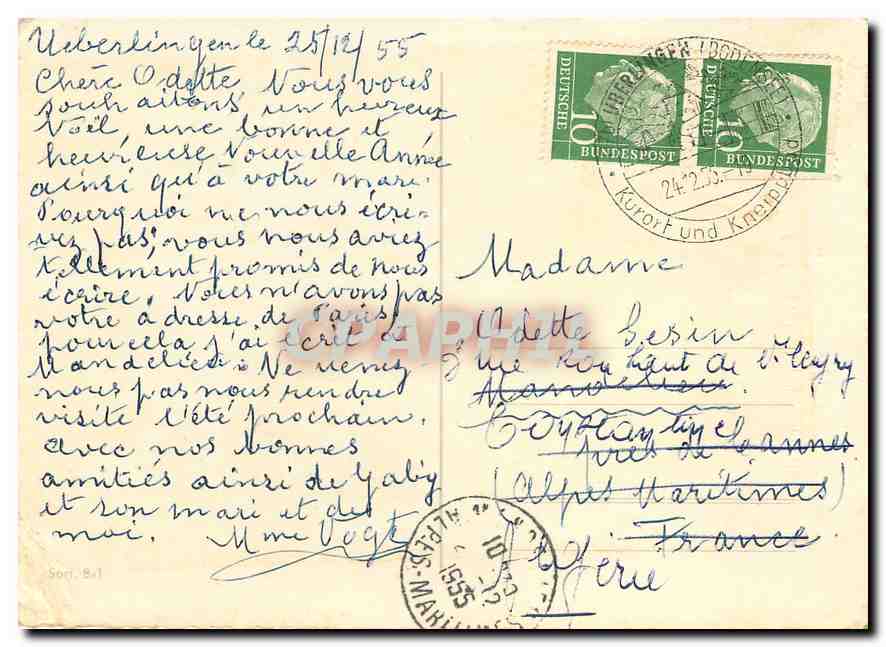 Ueberlingen le 25/12/55
Chère Odette, Nous vous
souhaitons un heureux
Noël, une bonne et
heureuse Nouvelle Année
ainsi qu'à votre mari.
Pourquoi ne nous écri-
vez pas, vous nous aviez
tellement promis de nous
écrire. Nous n'avons pas
votre adresse de Paris,
pour cela j'ai écrit à
Mandelieu. Ne venez
nous pas nous rendre
visite l'été prochain.
avec nos bonnes
amitiés ainsi de Gaby
et son mari et de
moi. Mme Vogt
Sort. 8/1
DEUTSCHE
10
BUNDESPOST
DEUTSCHE
10
BUNDESPOST
ÜBERLINGEN (BODENSEE)
24.12.55.
Kurort und Kneipp
Madame
Odette
rue du haut de
Mandelieu
Constantine
près de Cannes
(Alpes Maritimes)
France
Algérie
10
-12
1955
ALPES-MARITIMES
CPAPHIL